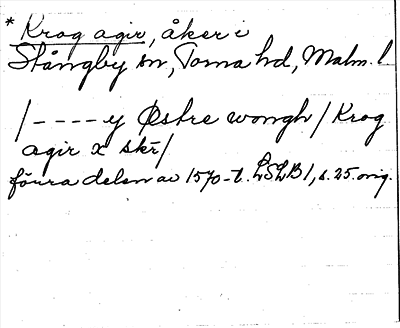 * Krog agir, åker i
Stångby sn, Torna hd, Malm. l
/ - - - - y Østre wongh / Krog
agir x skr̄ /
förra delen av 1570-t. LSLB 1, s. 25. orig.